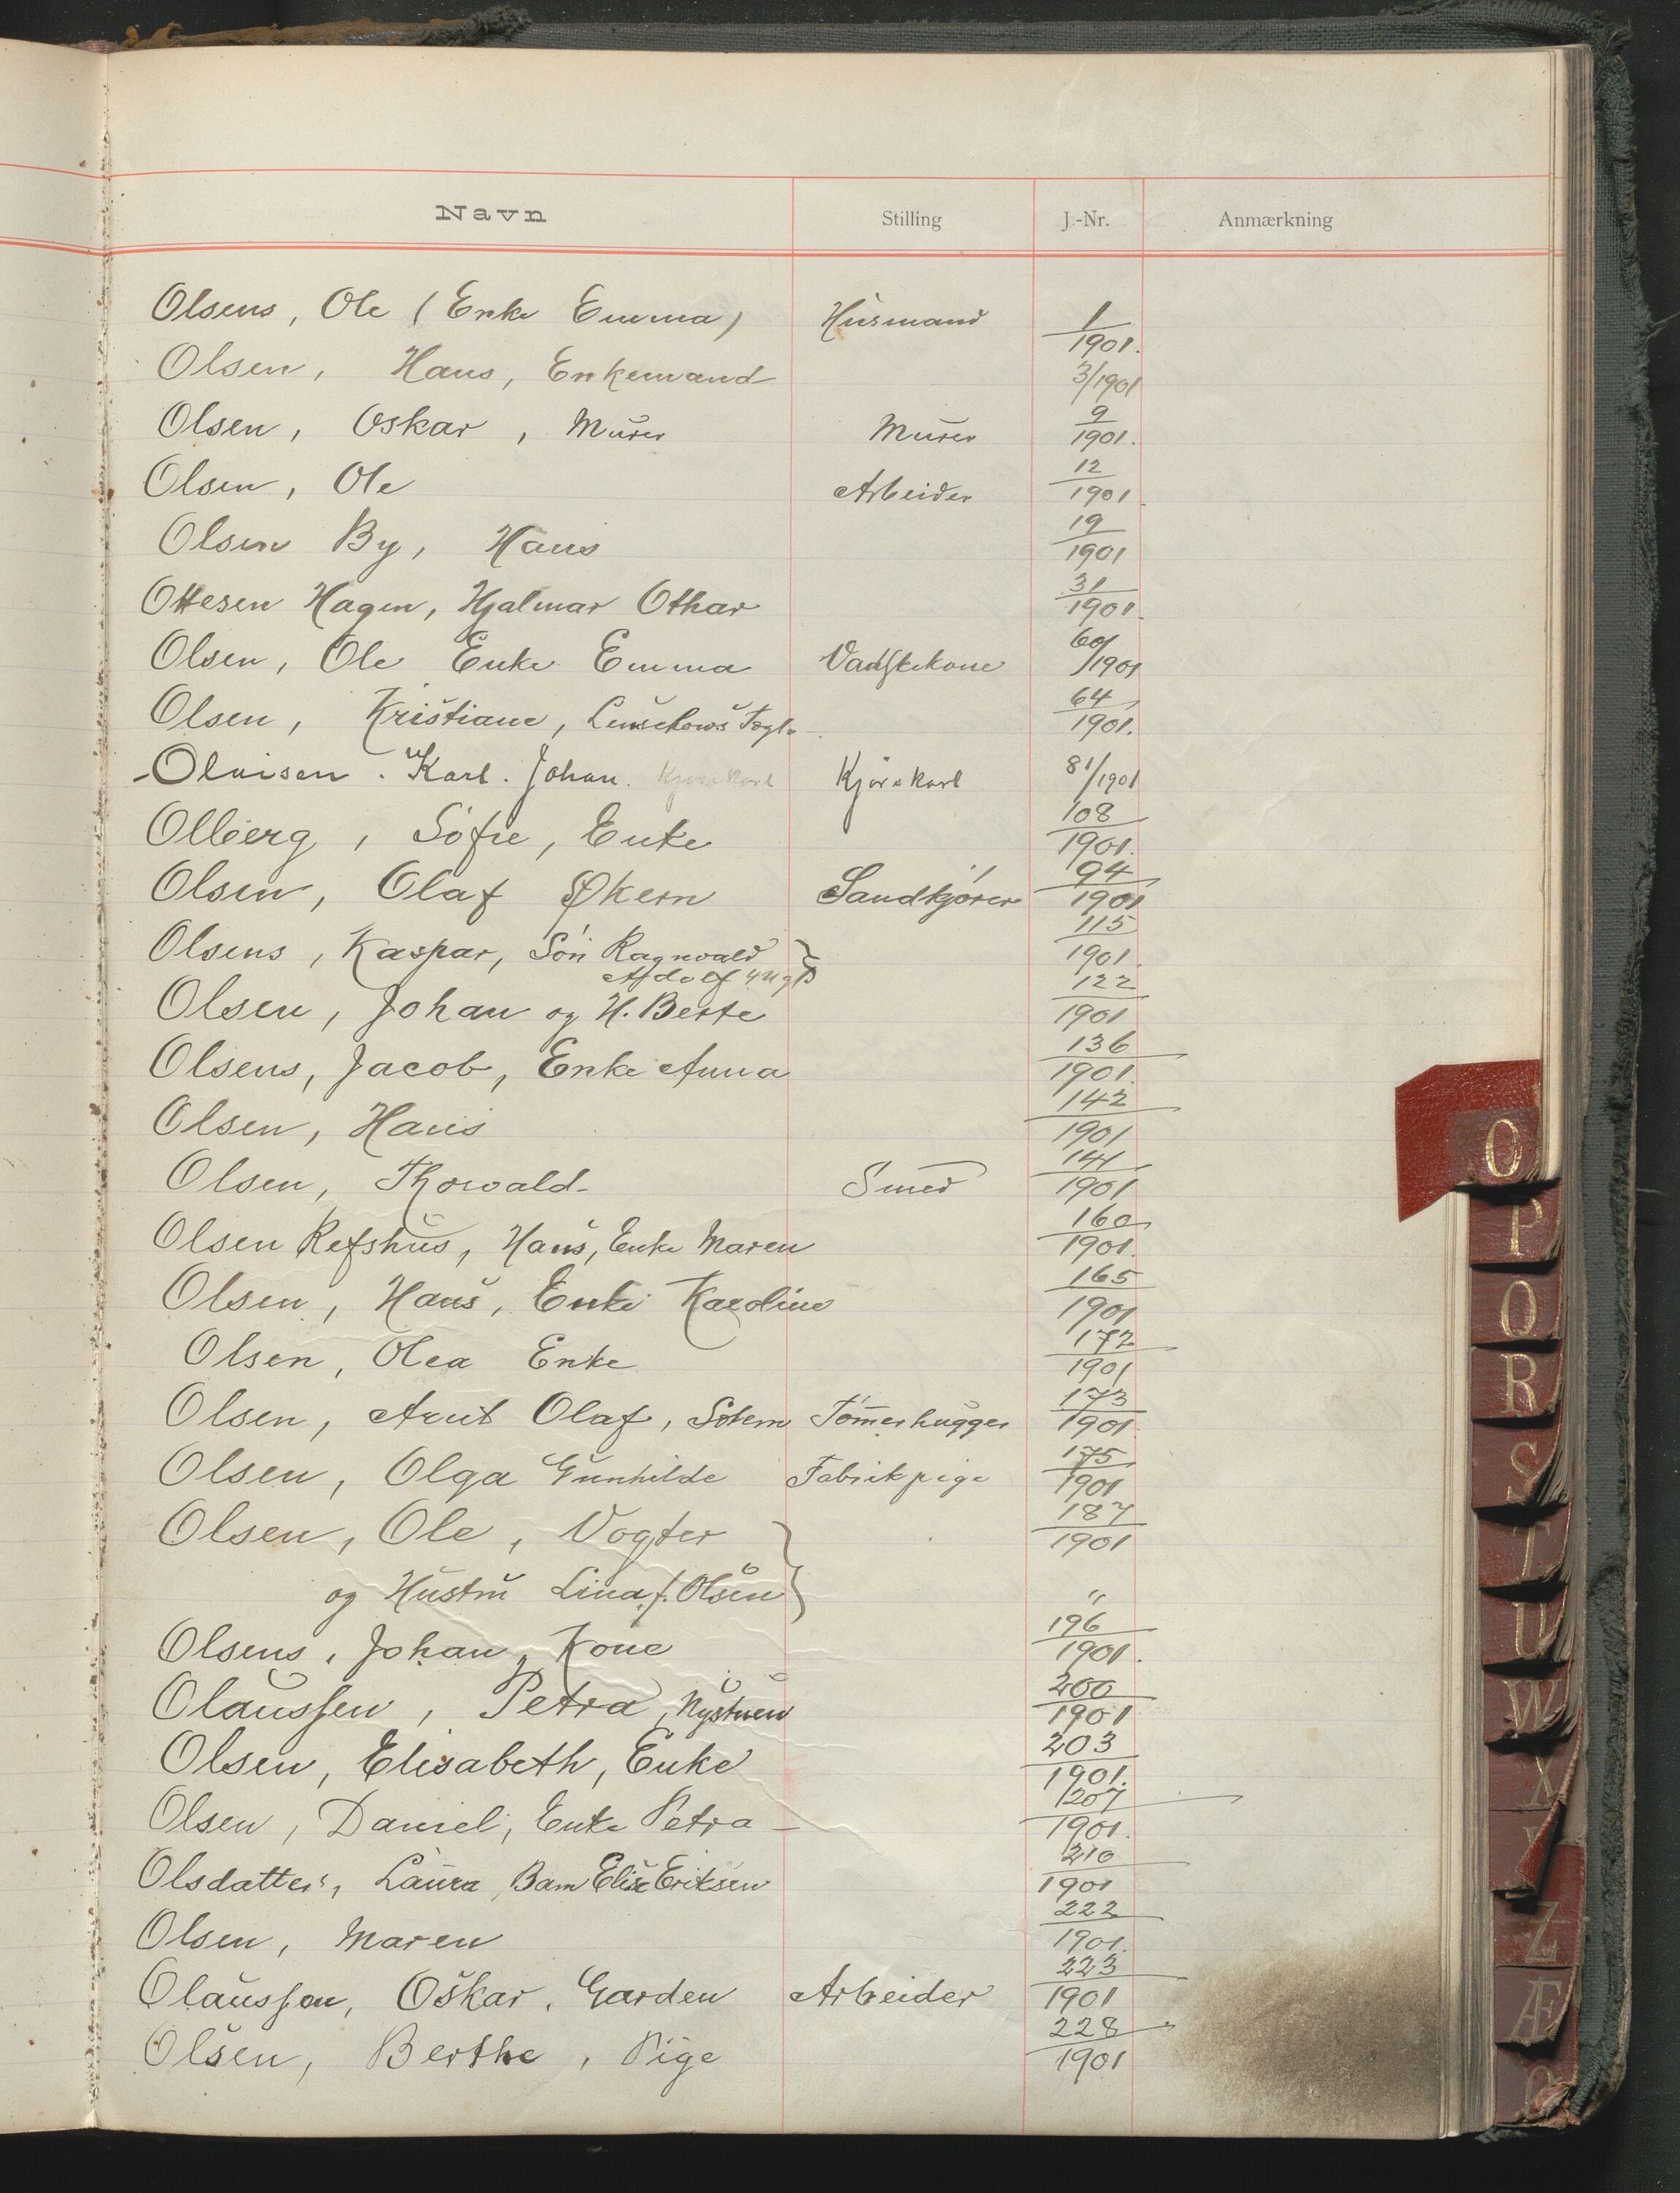 Navn Stilling J.-Nr. Anmærkning
Olsens, Ole (Enke Emma) Husmand 1/1901.
Olsen, Hans, Enkemand 3/1901
Olsen, Oskar, Murer Murer 9/1901.
Olsen, Ole Arbeider 12/1901
Olsen By, Hans 19/1901
Ottesen Hagen, Hjalmar Othar 31/1901.
Olsen, Ole Enke Emma Vadskekone 60/1901
Olsen, Kristiane, 64/1901.
Olaisen. Karl. Johan. Kjørekarl Kjørekarl 81/1901
Ollberg, Sofie, Enke 108/1901.
Olsen, Olaf Økern Sandkjører 94/1901
Olsens, Kaspar, Søn Ragnvald 115/1901.
Olsen, Johan og H. Berte 122/1901
Olsens, Jacob, Enke Anna 136/1901.
Olsen, Hans 142/1901
Olsen, Thorvald Smed 141/1901
Olsen Refshus, Hans, Enke Maren 160/1901.
Olsen, Hans, Enke Karoline 165/1901
Olsen, Olea Enke 172/1901
Olsen, Arnt Olaf, Tømmerhugger 173/1901
Olsen, Olga Gunhilde Fabrikpige 175/1901
Olsen, Ole, Vogter 187/1901
og Hustru Lina f. Olsen "
Olsens, Johan, Kone 196/1901.
Olaussen, Petra, Nystuen 200/1901
Olsen, Elisabeth, Enke 203/1901.
Olsen, Daniel, Enke Petra 207/1901.
Olsdatters, Laura, Barn Elise Eriksen 210/1901
Olsen, Maren 222/1901.
Olaussen, Oskar, Garden Arbeider 223/1901
Olsen, Berthe, Pige 228/1901
O
P
R
S
T
U
W
X
Z
Æ